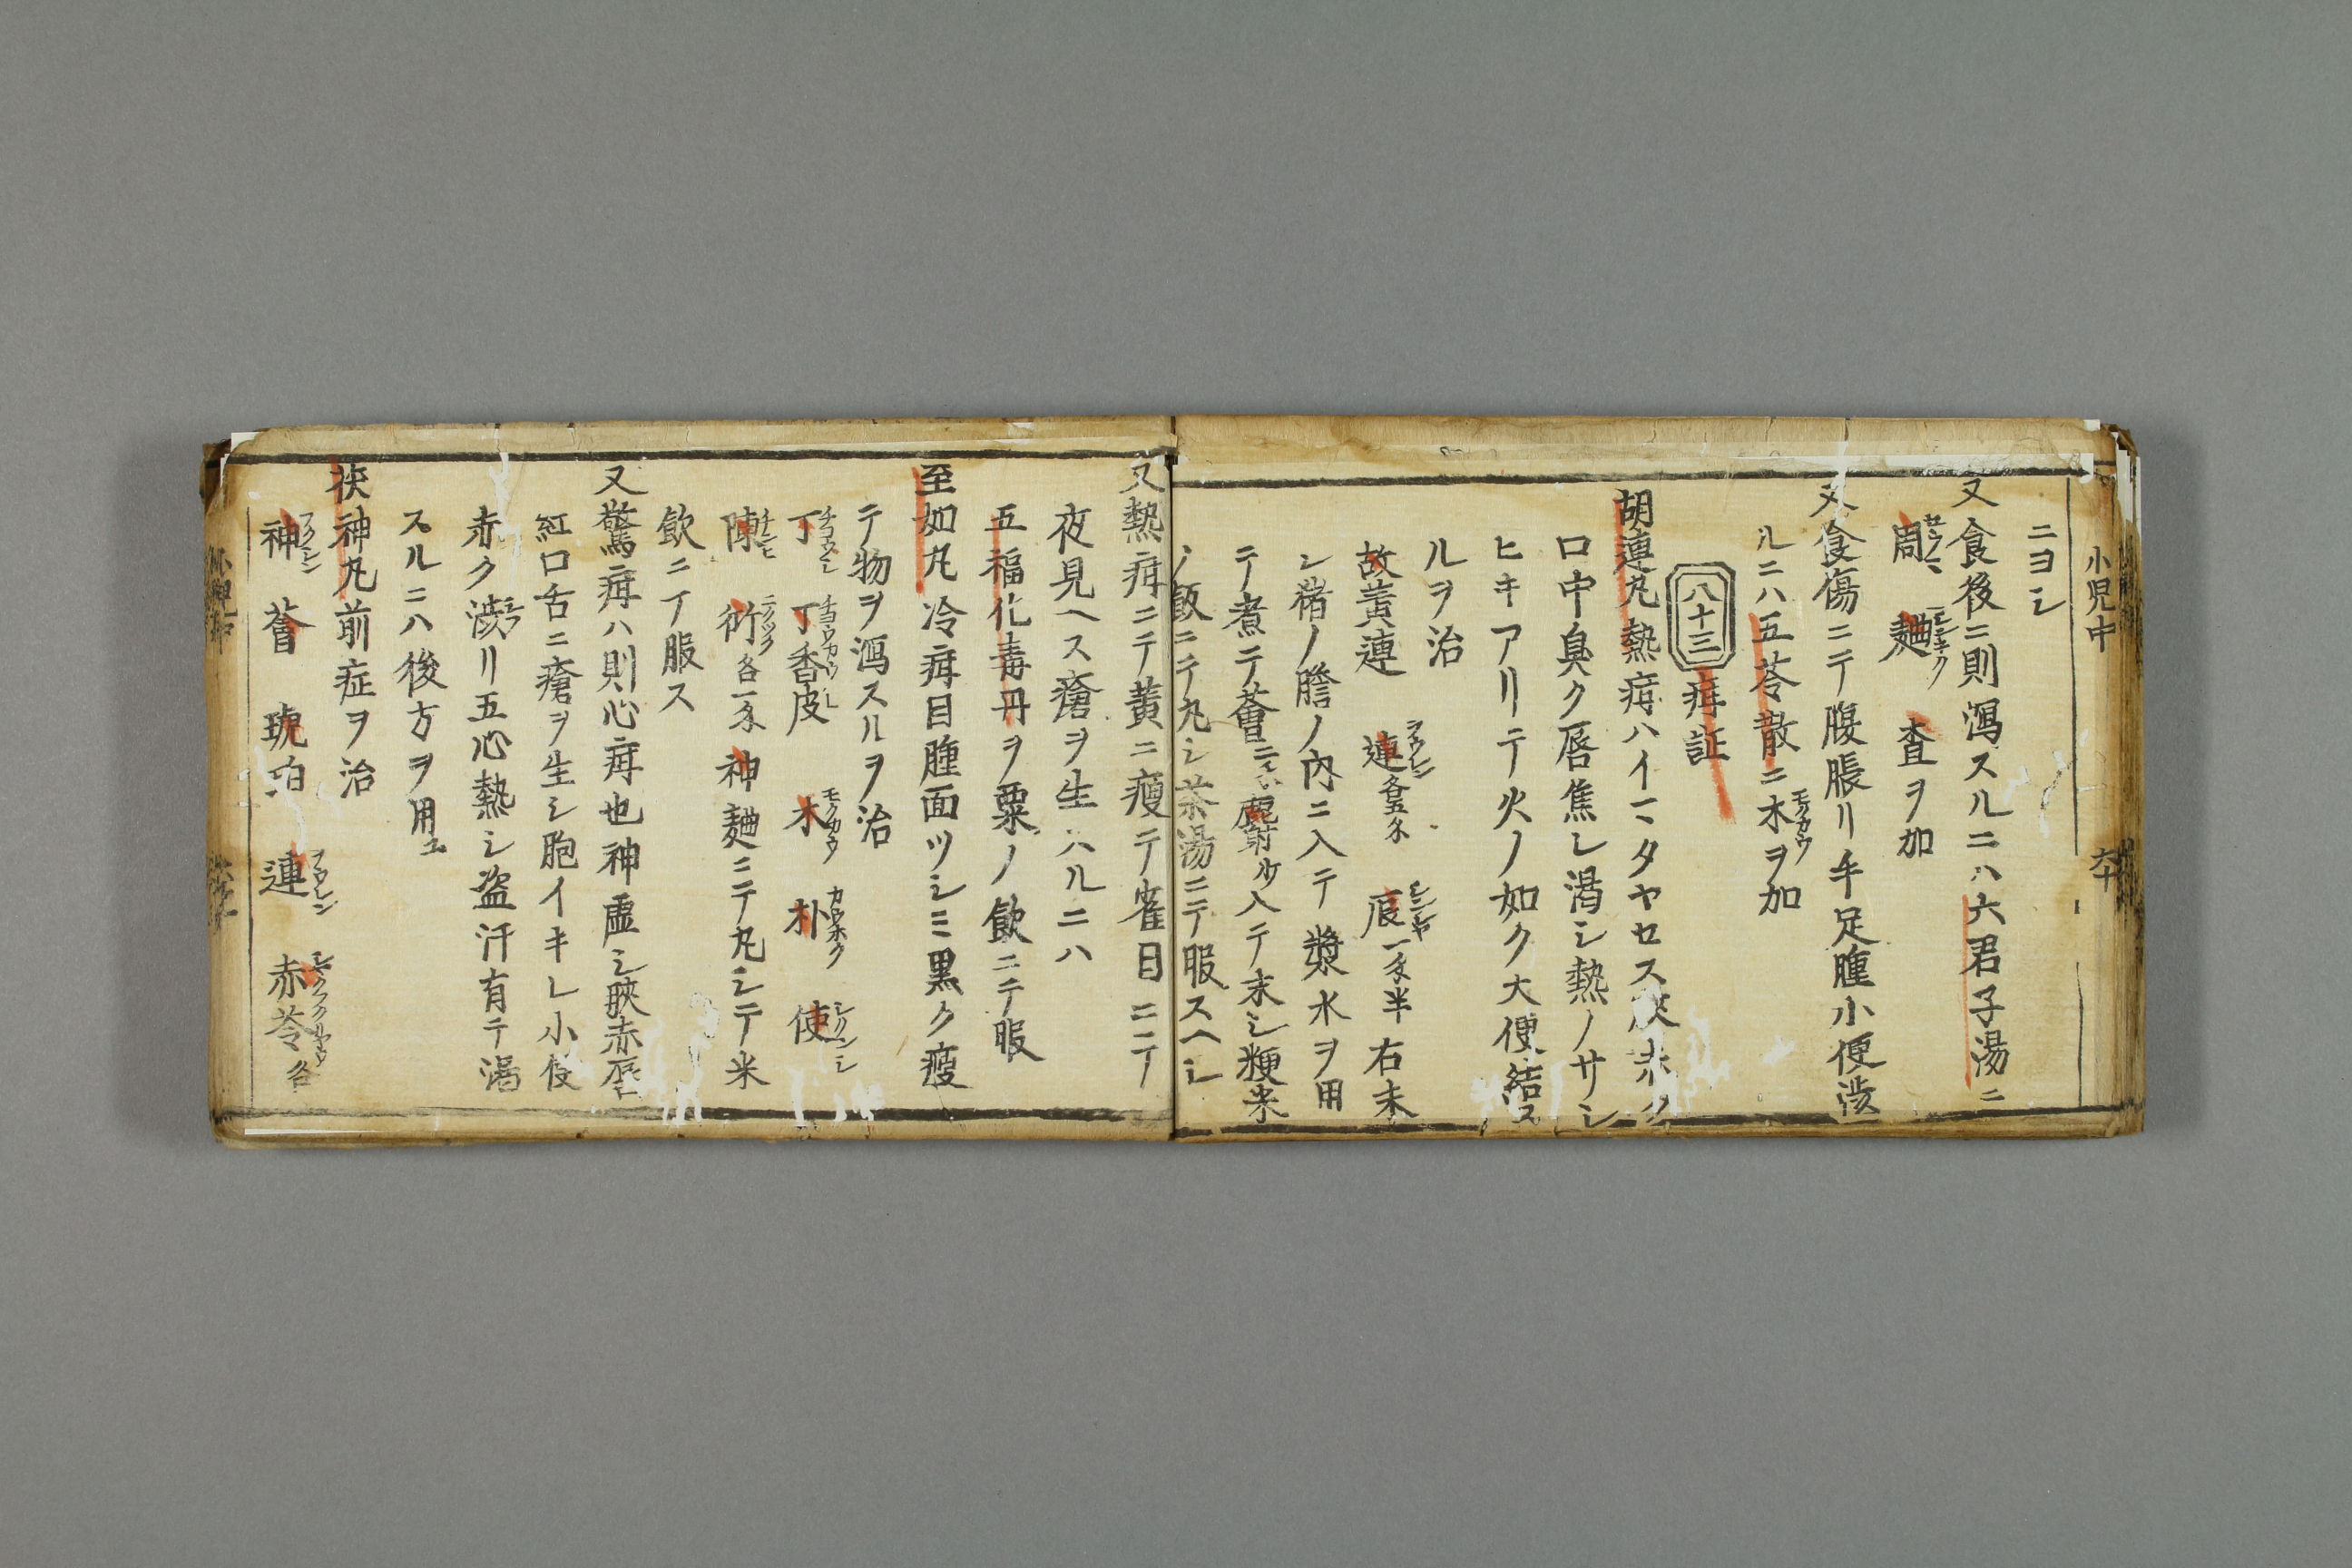 小児中 六十
ニヨシ
又食後ニ則瀉スルニハ六君子湯ニ
周 麯 査ヲ加
又食傷ニテ腹脹リ手足腫小便渋
ルニハ五苓散ニ木モクカウヲ加
八十三 疳証
胡連丸熱疳ハイマタヤセス 赤ク
口中臭ク唇焦レ渇シ熱ノサシ
ヒキアリテ火ノ如ク大便結ス
ルヲ治
故黄連 連各五 一 半右末
シ猪ノ膽ノ内ニ入テ漿水ヲ用
テ煮テ薈 入テ末シ粳米
ノ飯ニテ丸シ茶湯ニテ服スヘシ
又熱疳ニテ黄ニ瘦テ雀目ニテ
夜見ヘス瘡ヲ生ハルニハ
五福化毒丹ヲ粟ノ飲ニテ服
至如丸冷疳目腫面ツシミ黒ク瘦
テ物ヲ瀉スルヲ治
丁チヨウシ 丁香皮 木モクカウ 朴カウホク 使シクンシ
陳チンヒ 各一 神麯ニテ丸シテ米
飲ニテ服ス
又驚疳ハ則心疳也神虚シ 赤唇
紅口舌ニ瘡ヲ生シ胞イキレ小便
赤ク渋リ五心熱シ盗汗有テ渇
スルニハ後方ヲ用ユ
茯神丸前症ヲ治
神フクシン 薈 琥珀 連 赤苓 各